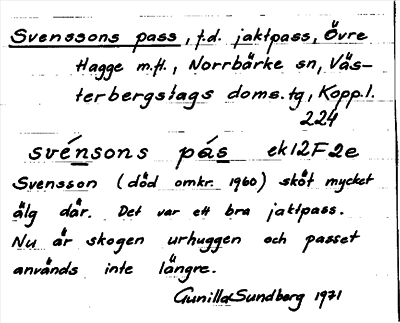 Svenssons pass, f.d. jaktpass, Övre
Hagge m.fl., Norrbärke sn, Väs-
terbergslags doms. tg, Kopp. l.
224
svénsons pás ek 12F2e
Svensson (död omkr. 1960) sköt mycket
älg där. Det var ett bra jaktpass.
Nu är skogen urhuggen och passet
används inte längre.
Gunilla Sundberg 1971